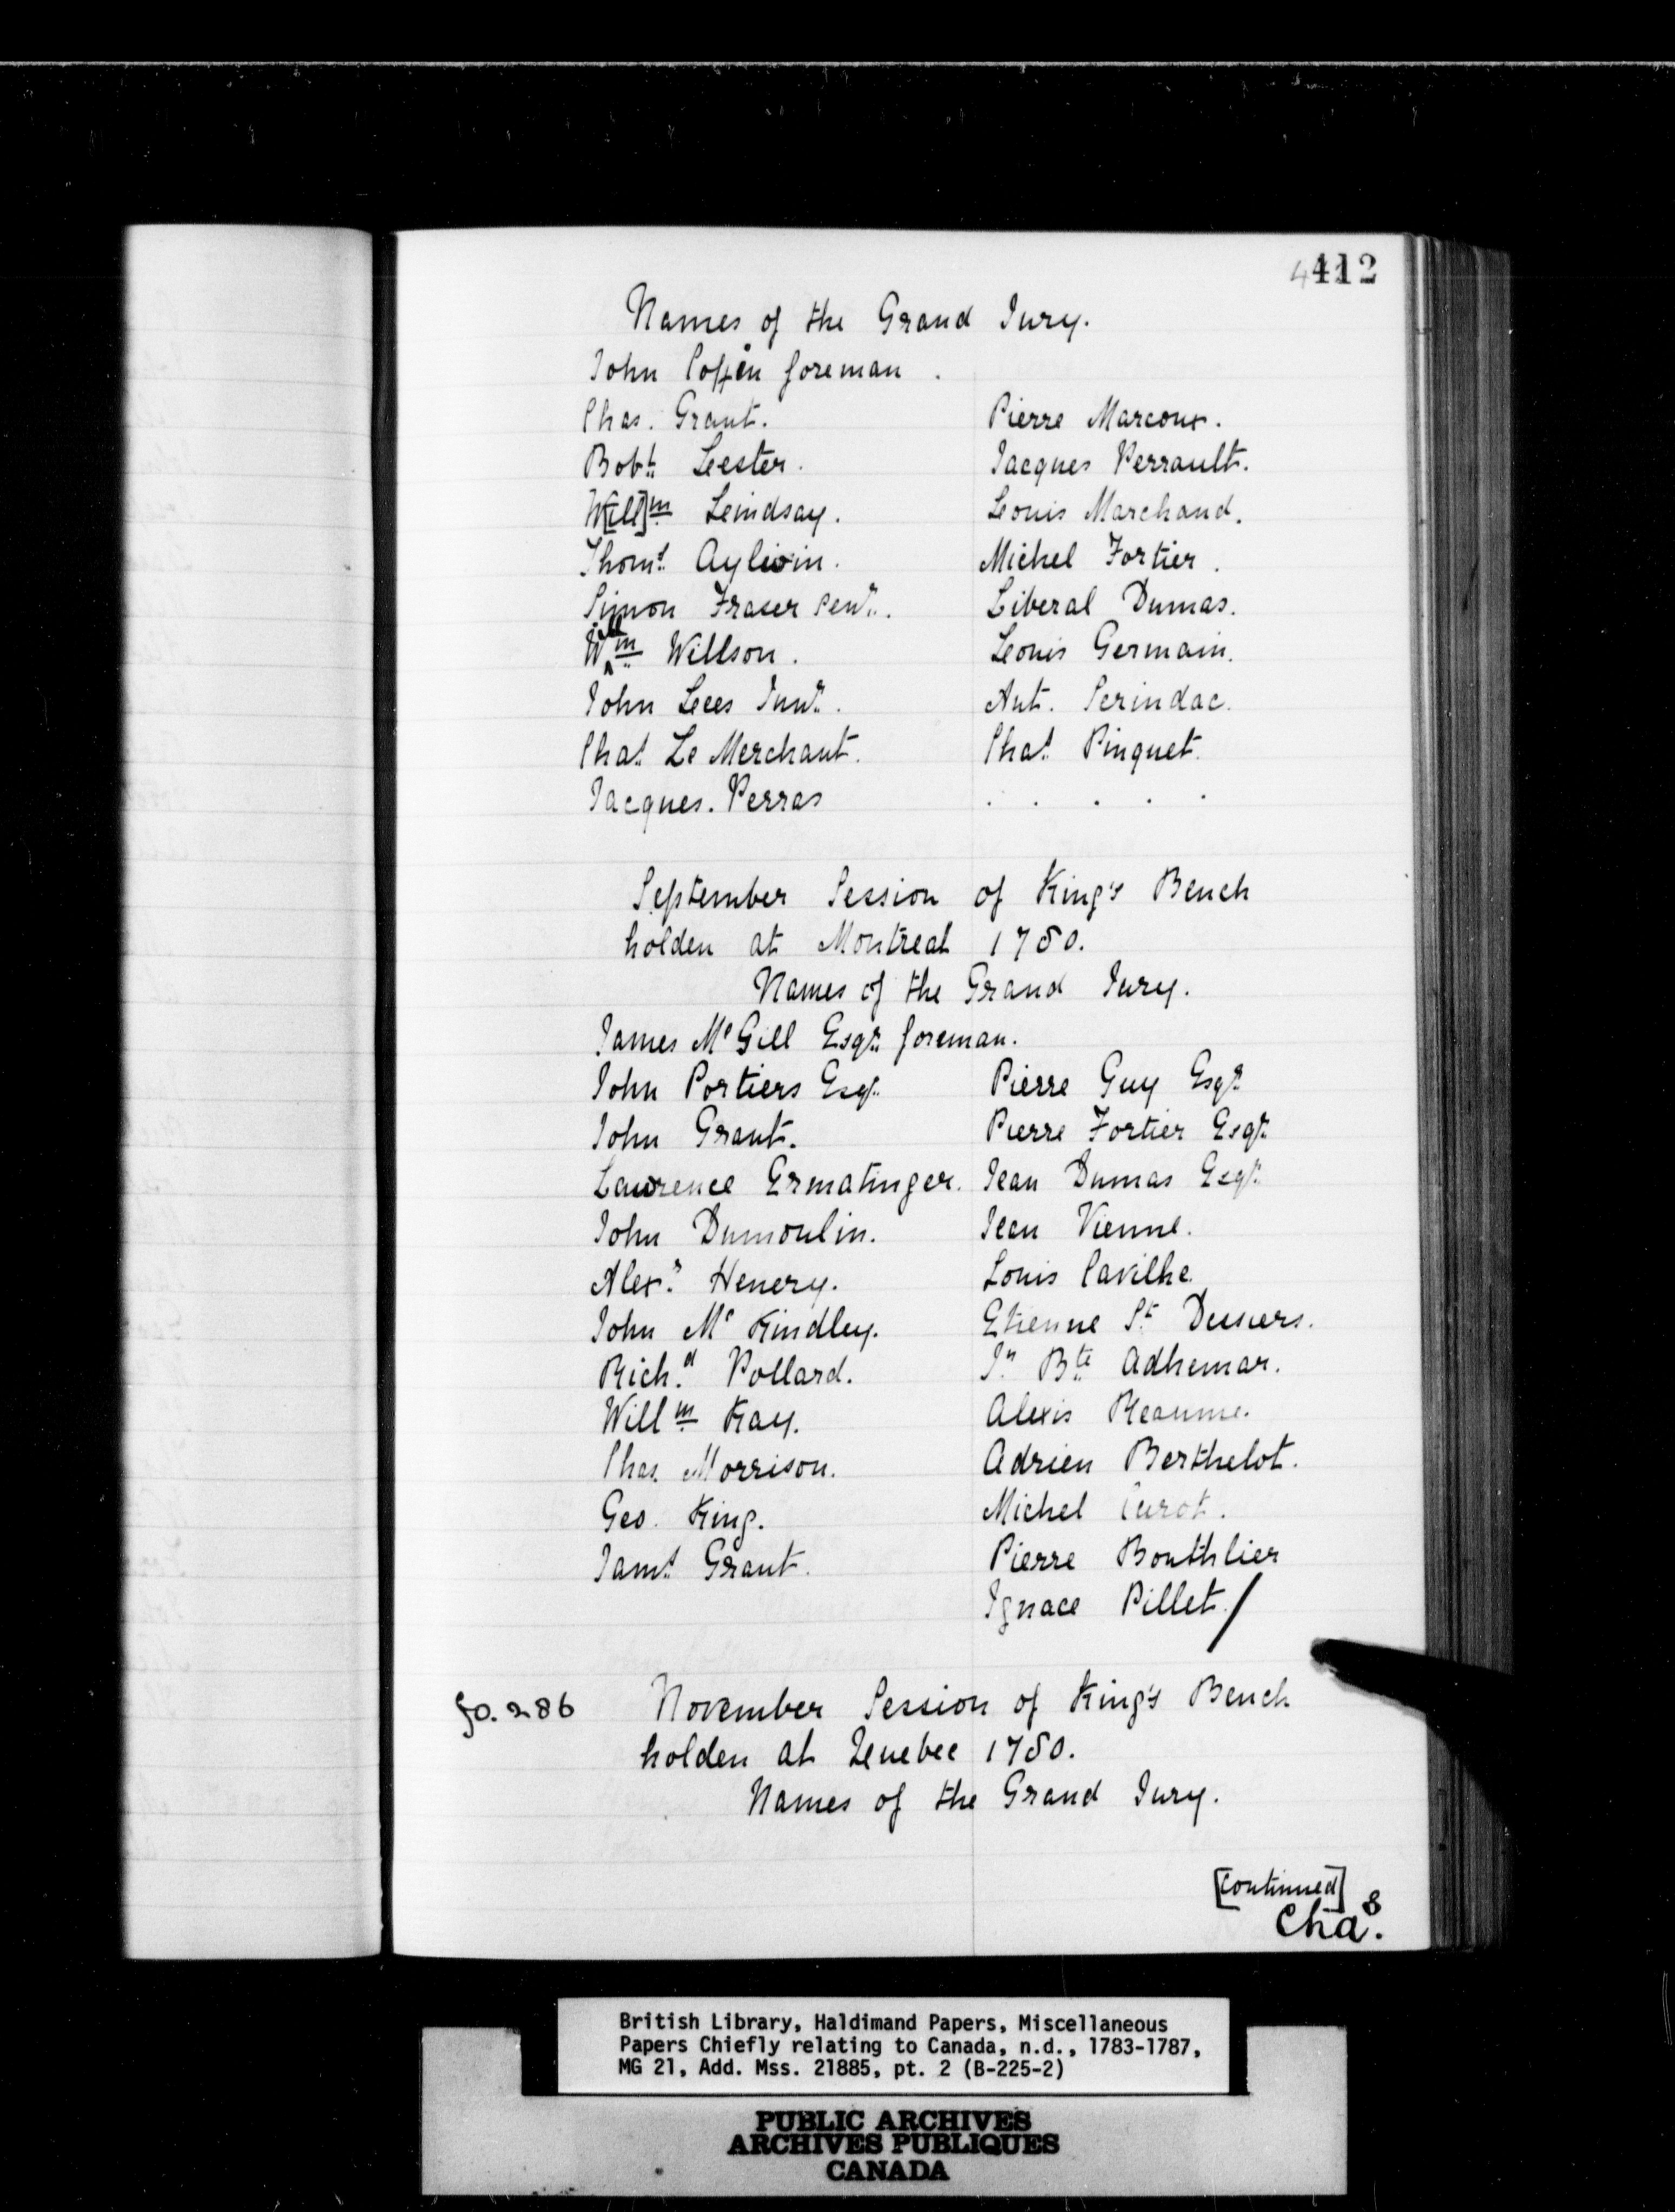 412
Names of the Grand Jury.
John Coffin foreman.
Chas. Grant. Pierre Marcoux.
Robt. Lester. Jacques Perrault.
W[ill]m Lindsay. Louis Marchand.
Thoms. Aylwin. Michel Fortier.
Simon Fraser Senr. Liberal Dumas.
Willm Willson. Louis Germain.
John Lees Junr. Ant. Serindac.
Chas. Le Merchant. Chas. Pinquet.
Jacques. Perras . . . . .
September Session of King's Bench
holden at Montreal 1780.
Names of the Grand Jury.
James Mc Gill Esqr. foreman.
John Portiers Esqr. Pierre Guy Esqr.
John Grant. Pierre Fortier Esqr.
Lawrence Ermatinger. Jean Dumas Esqr.
John Dumoulin. Jean Vienne.
Alexr. Henery. Louis Cavilhe
John Mc Kindley. Etienne St. Dessiers.
Richd. Pollard. Jn. Bte. Adhemar.
Willm Kay. Alexis Reaume.
Chas. Morrison. Adrien Berthelot.
Geo. King. Michel Curot.
Jams. Grant. Pierre Bouthlier
Ignace Pillet./
fo. 286 November Session of King's Bench
holden at Quebec 1780.
Names of the Grand Jury.
[continued]
Chas.
British Library, Haldimand Papers, Miscellaneous
Papers Chiefly relating to Canada, n.d., 1783-1787,
MG 21, Add. Mss. 21885, pt. 2 (B-225-2)
PUBLIC ARCHIVES
ARCHIVES PUBLIQUES
CANADA